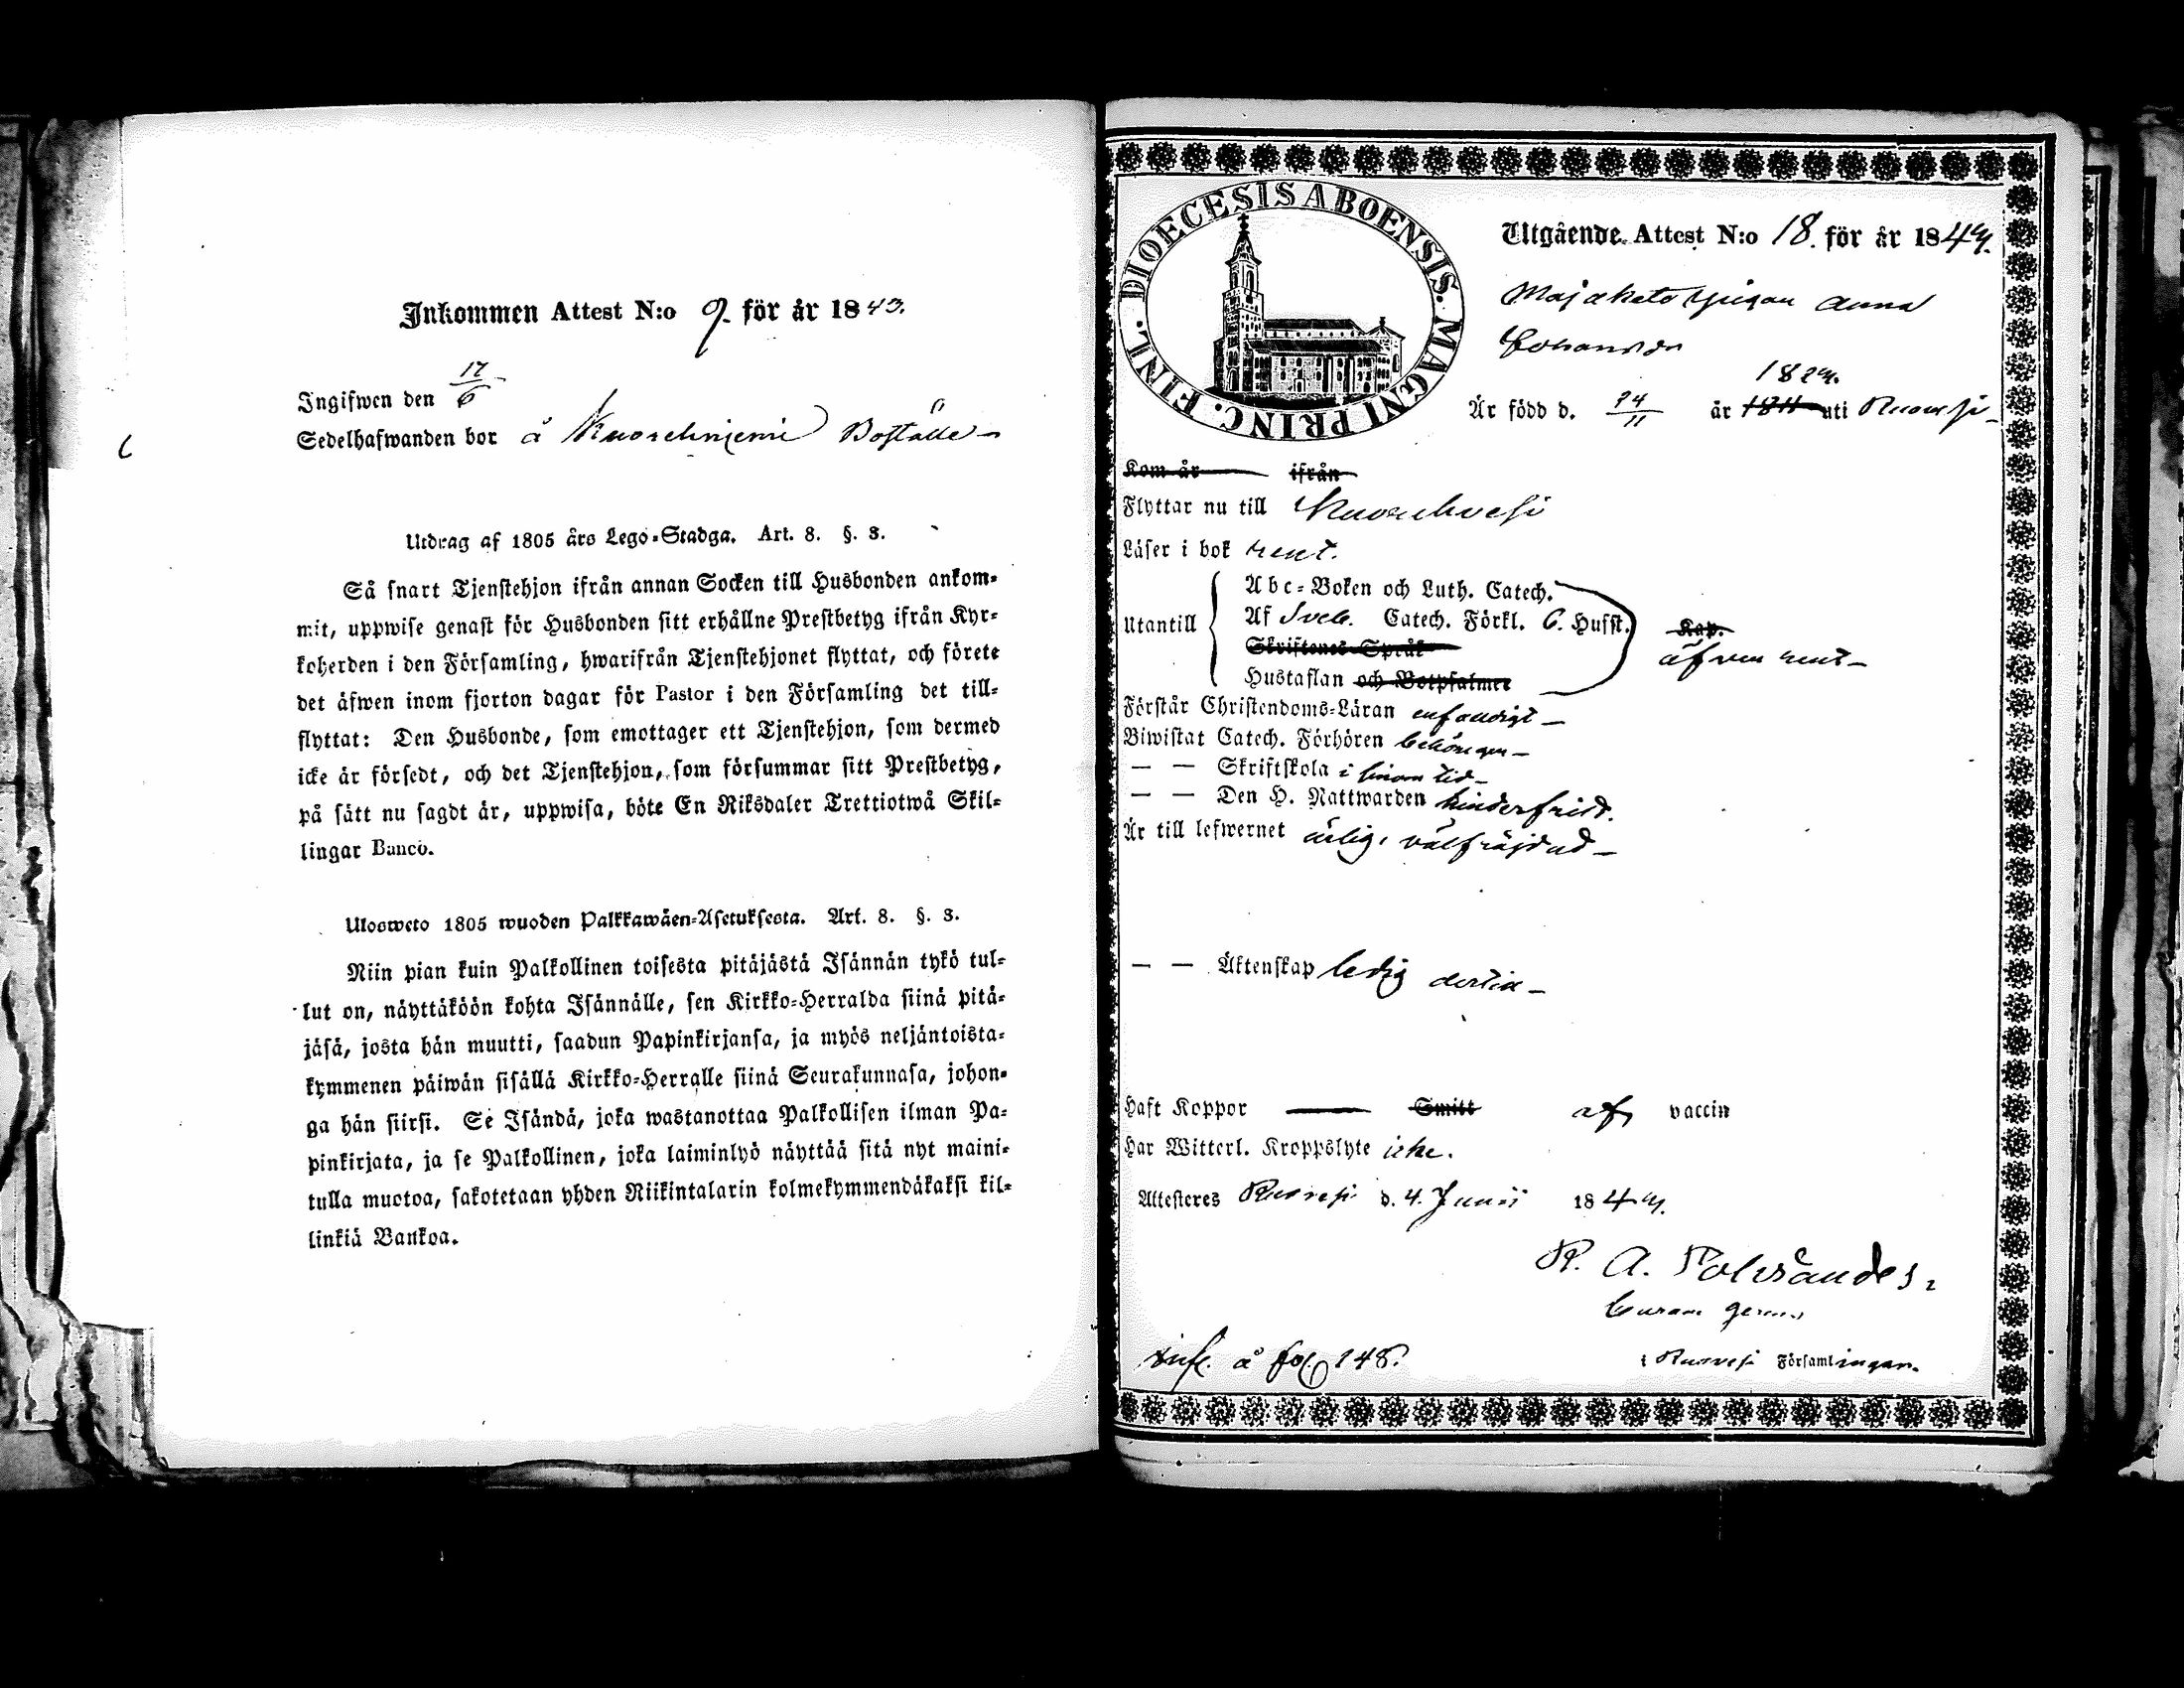 Inkommen Attest N:o 9. för år 1843.
Ingifwen den 17/6
Sedelhafwanden bor å Boställe
Utdrag af 1805 års Lego-Stadga. Art. 8. §. 3.
Så snart Tjenstehjon ifrån annan Socken till Husbonden ankom-
mit, uppwise genast för Husbonden sitt erhållne Prestbetyg ifrån Kyr-
koherden i den Församling, hwarifrån Tjenstehjonet flyttat, och förete
det äfwen inom fjorton dagar för Pastor i den Församling det till-
flyttat: Den Husbonde, som emottager ett Tjenstehjon, som dermed
icke är försedt, och det Tjenstehjon, som försummar sitt Prestbetyg,
på sätt nu sagdt är, uppwisa, böte En Riksdaler Trettiotwå Skil-
lingar Banco.
Ulosweto 1805 wuoden Palkkawäen-Asetuksesta. Art. 8. §. 3.
Niin pian kuin Palkollinen toisesta pitäjästä Isännän tykö tul-
lut on, näyttäköön kohta Isännälle, sen Kirkko-Herralda siinä pitä-
jäsä, josta hän muutti, saadun Papinkirjansa, ja myös neljäntoista-
kymmenen päiwän sisällä Kirkko-Herralle siinä Seurakunnasa, johon-
ga hän siirsi. Se Isändä, joka wastanottaa Palkollisen ilman Pa-
pinkirjata, ja se Palkollinen, joka laiminlyö näyttää sitä nyt maini-
tulla muotoa, sakotetaan yhden Riikintalarin kolmekymmendäkaksi kil-
linkiä Bankoa.
DIOECESIS ABOENSIS. MAGNI PRINC. FINL.
Utgående Attest N:o 18. för år 184
Anna
Är född d. 24/11 år 1811 uti Ruovesi
Kom år ifrån
Flyttar nu till Kuorehvesi
Läser i bok rent.
Utantill
Abc-Boken och Luth. Catech.
Af Sveb. Catech. Förkl. 6. Husst.
Skriftenes Språk
Hustaflan och Botpsalmer
Kap.
äfven rent
Förstår Christendoms-Läran enfaldigt
Biwistat Catech. Förhören behörigen
— — Skriftskola i sinom tid
— — Den H. Nattwarden hinderfritt.
Är till lefwernet ärlig, välfräjdad
— — Äktenskap ledig dertill
Haft Koppor Smitt af vaccin
Har Witterl. Kroppslyte icke.
Attesteres Ruovesi d. 4. Junii 184
R. A.
Curam gerens
Infl. å fol 148.
i Ruovesi Församlingen.